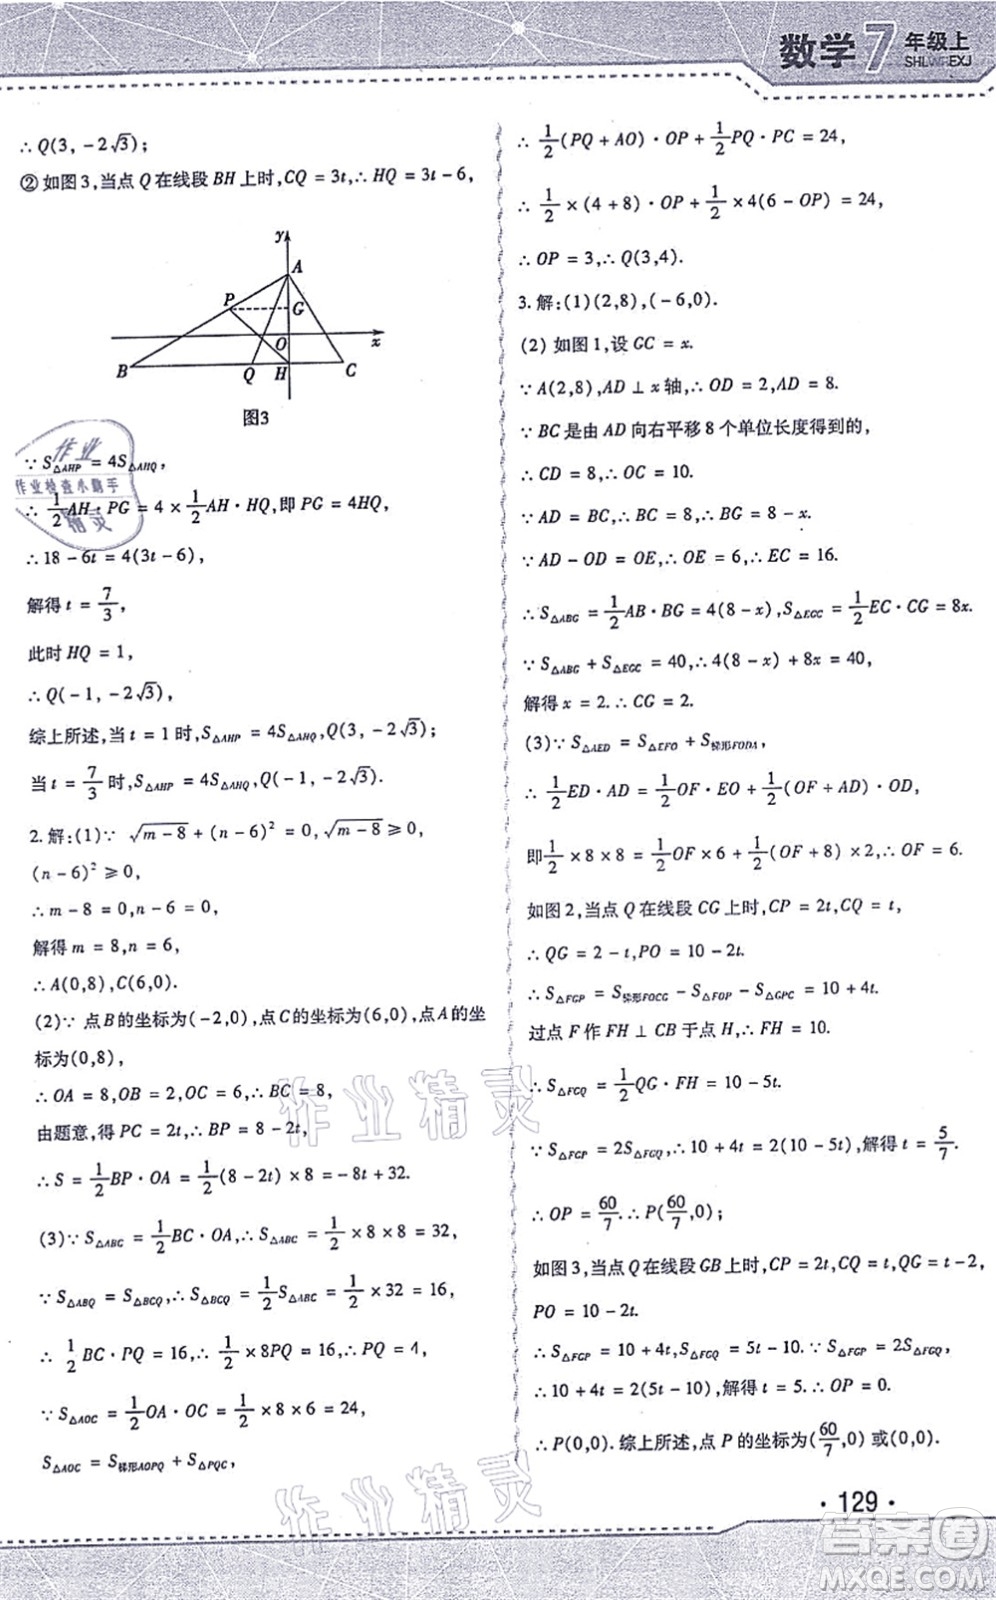 数学7年级上
SHLWREXJ
∴Q(3, -2√3);
②如图3,当点Q在线段BH上时,CQ = 3t,∴HQ = 3t - 6,
y
A
P
G
O
x
B
Q
H
C
图3
∵S△AHP = 4S△AHQ,
∴ 1/2 AH·PG = 4 × 1/2 AH·HQ,即PG = 4HQ,
∴18 - 6t = 4(3t - 6),
解得t = 7/3,
此时HQ = 1,
∴Q(-1, -2√3),
综上所述,当t = 1时,S△AHP = 4S△AHQ,Q(3, -2√3);
当t = 7/3时,S△AHP = 4S△AHQ,Q(-1, -2√3).
2.解:(1)∵ √(m-8) + (n-6)² = 0,√(m-8) ≥ 0,
(n-6)² ≥ 0,
∴m - 8 = 0,n - 6 = 0,
解得m = 8,n = 6,
∴A(0,8),C(6,0).
(2)∵点B的坐标为(-2,0),点C的坐标为(6,0),点A的坐
标为(0,8),
∴OA = 8,OB = 2,OC = 6,∴BC = 8,
由题意,得PC = 2t,∴BP = 8 - 2t,
∴S = 1/2 BP·OA = 1/2 (8 - 2t) × 8 = -8t + 32.
(3)∵S△ABC = 1/2 BC·OA,∴S△ABC = 1/2 × 8 × 8 = 32,
∵S△ABQ = S△BCQ,∴S△BCQ = 1/2 S△ABC = 1/2 × 32 = 16,
∴ 1/2 BC·PQ = 16,∴ 1/2 × 8PQ = 16,∴PQ = 4,
∵S△AOC = 1/2 OA·OC = 1/2 × 8 × 6 = 24,
S△AOC = S梯形AOPQ + S△PQC,
∴ 1/2 (PQ + AO)·OP + 1/2 PQ·PC = 24,
∴ 1/2 × (4 + 8)·OP + 1/2 × 4(6 - OP) = 24,
∴OP = 3,∴Q(3,4).
3.解:(1)(2,8),(-6,0).
(2)如图1,设GC = x.
∵A(2,8),AD⊥x轴,∴OD = 2,AD = 8.
∵BC是由AD向右平移8个单位长度得到的,
∴CD = 8,∴OC = 10.
∵AD = BC,∴BC = 8,∴BG = 8 - x.
∵AD - OD = OE,∴OE = 6,∴EC = 16.
∴S△ABG = 1/2 AB·BG = 4(8 - x),S△EGC = 1/2 EC·CG = 8x.
∵S△ABG + S△EGC = 40,∴4(8 - x) + 8x = 40,
解得x = 2.∴CG = 2.
(3)∵S△AED = S△EFO + S梯形FODA,
∴ 1/2 ED·AD = 1/2 OF·EO + 1/2 (OF + AD)·OD,
即 1/2 × 8 × 8 = 1/2 OF × 6 + 1/2 (OF + 8) × 2,∴OF = 6.
如图2,当点Q在线段CG上时,CP = 2t,CQ = t,
∴QG = 2 - t,PO = 10 - 2t.
∴S△FGP = S梯形FOCG - S△FOP - S△GPC = 10 + 4t.
过点F作FH⊥CB于点H,∴FH = 10.
∴S△FGQ = 1/2 QG·FH = 10 - 5t.
∵S△FGP = 2S△FGQ,∴10 + 4t = 2(10 - 5t),解得t = 5/7.
∴OP = 60/7.∴P(60/7,0);
如图3,当点Q在线段GB上时,CP = 2t,CQ = t,QG = t - 2,
PO = 10 - 2t.
∴S△FGP = 10 + 4t,S△FGQ = 5t - 10.∵S△FGP = 2S△FGQ,
∴10 + 4t = 2(5t - 10),解得t = 5.∴OP = 0.
∴P(0,0).综上所述,点P的坐标为(60/7,0)或(0,0).
·129·
作业
作业检查小助手
精灵
作业精灵
作业精灵
答案圈
MXQE.COM